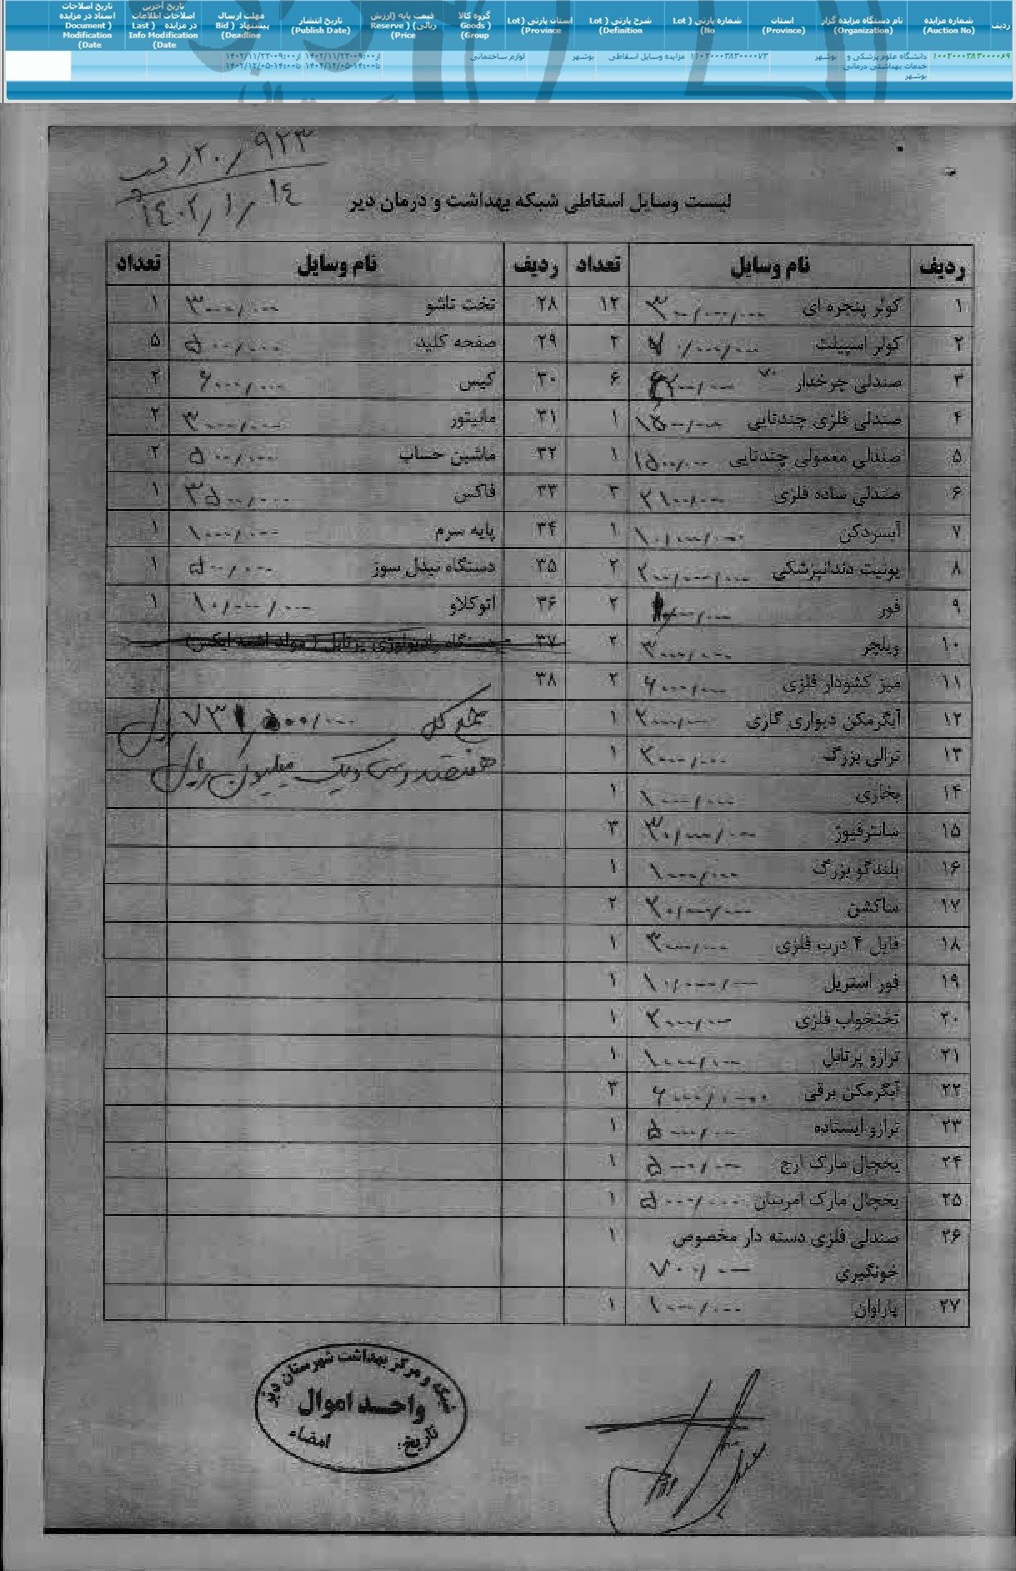 ردیف شماره مزایده (Auction No) نام دستگاه مزایده گزار (Organization) استان (Province) شماره پارتی ( Lot No) شرح پارتی ( Lot Definition) استان پارتی ( Lot Province) گروه کالا ( Goods Group) قیمت پایه (ارزش ریالی) ( Reserve Price) تاریخ انتشار (Publish Date) مهلت ارسال پیشنهاد ( Bid Deadline) تاریخ آخرین اصلاحات اطلاعات در مزایده ( Last Info Modification Date) تاریخ اصلاحات اسناد در مزایده ( Document Modification Date)
دانشگاه علوم پزشکی و خدمات بهداشتی درمانی بوشهر بوشهر مزایده وسایل اسقاطی بوشهر لوازم ساختمانی
۲۰/۹۲۳
۱۴۰۲/۱/۱۴
لیست وسایل اسقاطی شبکه بهداشت و درمان دیر
ردیف نام وسایل تعداد ردیف نام وسایل تعداد
۱ کولر پنجره ای ۱۲ ۲۸ تخت تاشو ۳۰۰۰/۰۰۰ ۱
۲ کولر اسپیلت ۲ ۲۹ صفحه کلید ۵۰۰/۰۰۰ ۵
۳ صندلی چرخدار ۶ ۳۰ کیس ۶۰۰۰/۰۰۰ ۲
۴ صندلی فلزی چندتایی ۱ ۳۱ مانیتور ۳۰۰۰/۰۰۰ ۲
۵ صندلی معمولی چندتایی ۱۵۰۰/۰۰۰ ۱ ۳۲ ماشین حساب ۵۰۰/۰۰۰ ۲
۶ صندلی ساده فلزی ۲۱۰۰/۰۰۰ ۳ ۳۳ فاکس ۳۵۰۰/۰۰۰ ۱
۷ آبسردکن ۱۰/۰۰۰/۰۰۰ ۱ ۳۴ پایه سرم ۱۰۰۰/۰۰۰ ۱
۸ یونیت دندانپزشکی ۲۰۰/۰۰۰/۰۰۰ ۲ ۳۵ دستگاه نیدل سوز ۵۰۰/۰۰۰ ۱
۹ فور ۲ ۳۶ اتوکلاو ۱۰/۰۰۰/۰۰۰ ۱
۱۰ ویلچر ۳۰۰۰/۰۰۰ ۲ ۳۷ دستگاه رادیولوژی پرتابل ( مولد اشعه ایکس)
۱۱ میز کشودار فلزی ۶۰۰۰/۰۰۰ ۲ ۳۸
۱۲ آبگرمکن دیواری گازی ۲۰۰۰/۰۰۰ ۱ جمع کل ۷۳۱/۵۰۰/۰۰۰ ریال
۱۳ ترالی بزرگ ۲۰۰۰/۰۰۰ ۱ هفتصد و سی و یک میلیون ریال
۱۴ بخاری ۱۰۰۰/۰۰۰ ۱
۱۵ سانترفیوژ ۳۰/۰۰۰/۰۰۰ ۳
۱۶ بلندگو بزرگ ۱۰۰۰/۰۰۰ ۱
۱۷ ساکشن ۲۰/۰۰۰/۰۰۰ ۲
۱۸ فایل ۴ درب فلزی ۳۰۰۰/۰۰۰ ۱
۱۹ فور استریل ۱۰/۰۰۰/۰۰۰ ۱
۲۰ تختخواب فلزی ۲۰۰۰/۰۰۰ ۱
۲۱ ترازو پرتابل ۱۰۰۰/۰۰۰ ۱
۲۲ آبگرمکن برقی ۳
۲۳ ترازو ایستاده ۵۰۰۰/۰۰۰ ۱
۲۴ یخچال مارک ارج ۵۰۰۰/۰۰۰ ۱
۲۵ یخچال مارک امرسان ۵۰۰۰/۰۰۰ ۱
۲۶ صندلی فلزی دسته دار مخصوص ۱
خونگیری ۷۰۰/۰۰۰
۲۷ پاراوان ۱۰۰۰/۰۰۰ ۱
شبکه و مرکز بهداشت شهرستان دیر
واحد اموال
تاریخ: امضاء